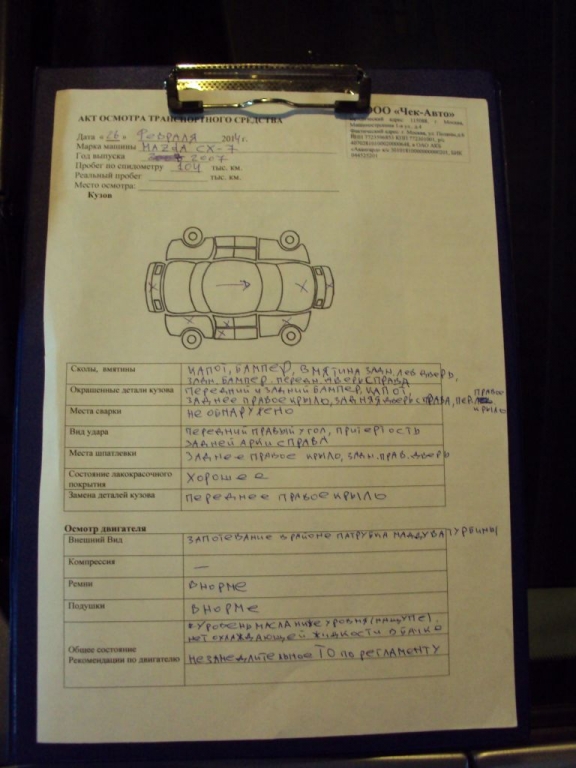 ООО «Чек-Авто»
АКТ ОСМОТРА ТРАНСПОРТНОГО СРЕДСТВА
Дата « 26 » ФЕВРАЛЯ 2014 г.
Марка машины MAZDA CX-7
Год выпуска 2007
Пробег по спидометру 104 тыс. км.
Реальный пробег тыс. км.
Место осмотра:
Кузов
Сколы, вмятины КАПОТ, БАМПЕР, ВМЯТИНА ЗАДН. ЛЕВ ДВЕРЬ,
ЗАДН. БАМПЕР, ПЕРЕДН. ДВЕРЬ СПРАВА
Окрашенные детали кузова ПЕРЕДНИЙ И ЗАДНИЙ БАМПЕР, КАПОТ,
ЗАДНЕЕ ПРАВОЕ КРЫЛО, ЗАДНЯЯ ДВЕРЬ СПРАВА, ПЕР. ПРАВОЕ КРЫЛО
Места сварки НЕ ОБНАРУЖЕНО
Вид удара ПЕРЕДНИЙ ПРАВЫЙ УГОЛ, ПРИТЕРТОСТЬ
ЗАДНЕЙ АРКИ СПРАВА
Места шпатлевки ЗАДНЕЕ ПРАВОЕ КРЫЛО, ЗАДН. ПРАВ. ДВЕРЬ
Состояние лакокрасочного
покрытия ХОРОШЕЕ
Замена деталей кузова ПЕРЕДНЕЕ ПРАВОЕ КРЫЛО
Осмотр двигателя
Внешний Вид ЗАПОТЕВАНИЕ В РАЙОНЕ ПАТРУБКА НАДДУВА ТУРБИНЫ
Компрессия —
Ремни В НОРМЕ
Подушки В НОРМЕ
УРОВЕНЬ МАСЛА НИЖЕ УРОВНЯ
НЕТ ОХЛАЖДАЮЩЕЙ ЖИДКОСТИ В БАЧКЕ
Общее состояние
Рекомендации по двигателю НЕЗАМЕДЛИТЕЛЬНОЕ ТО ПО РЕГЛАМЕНТУ